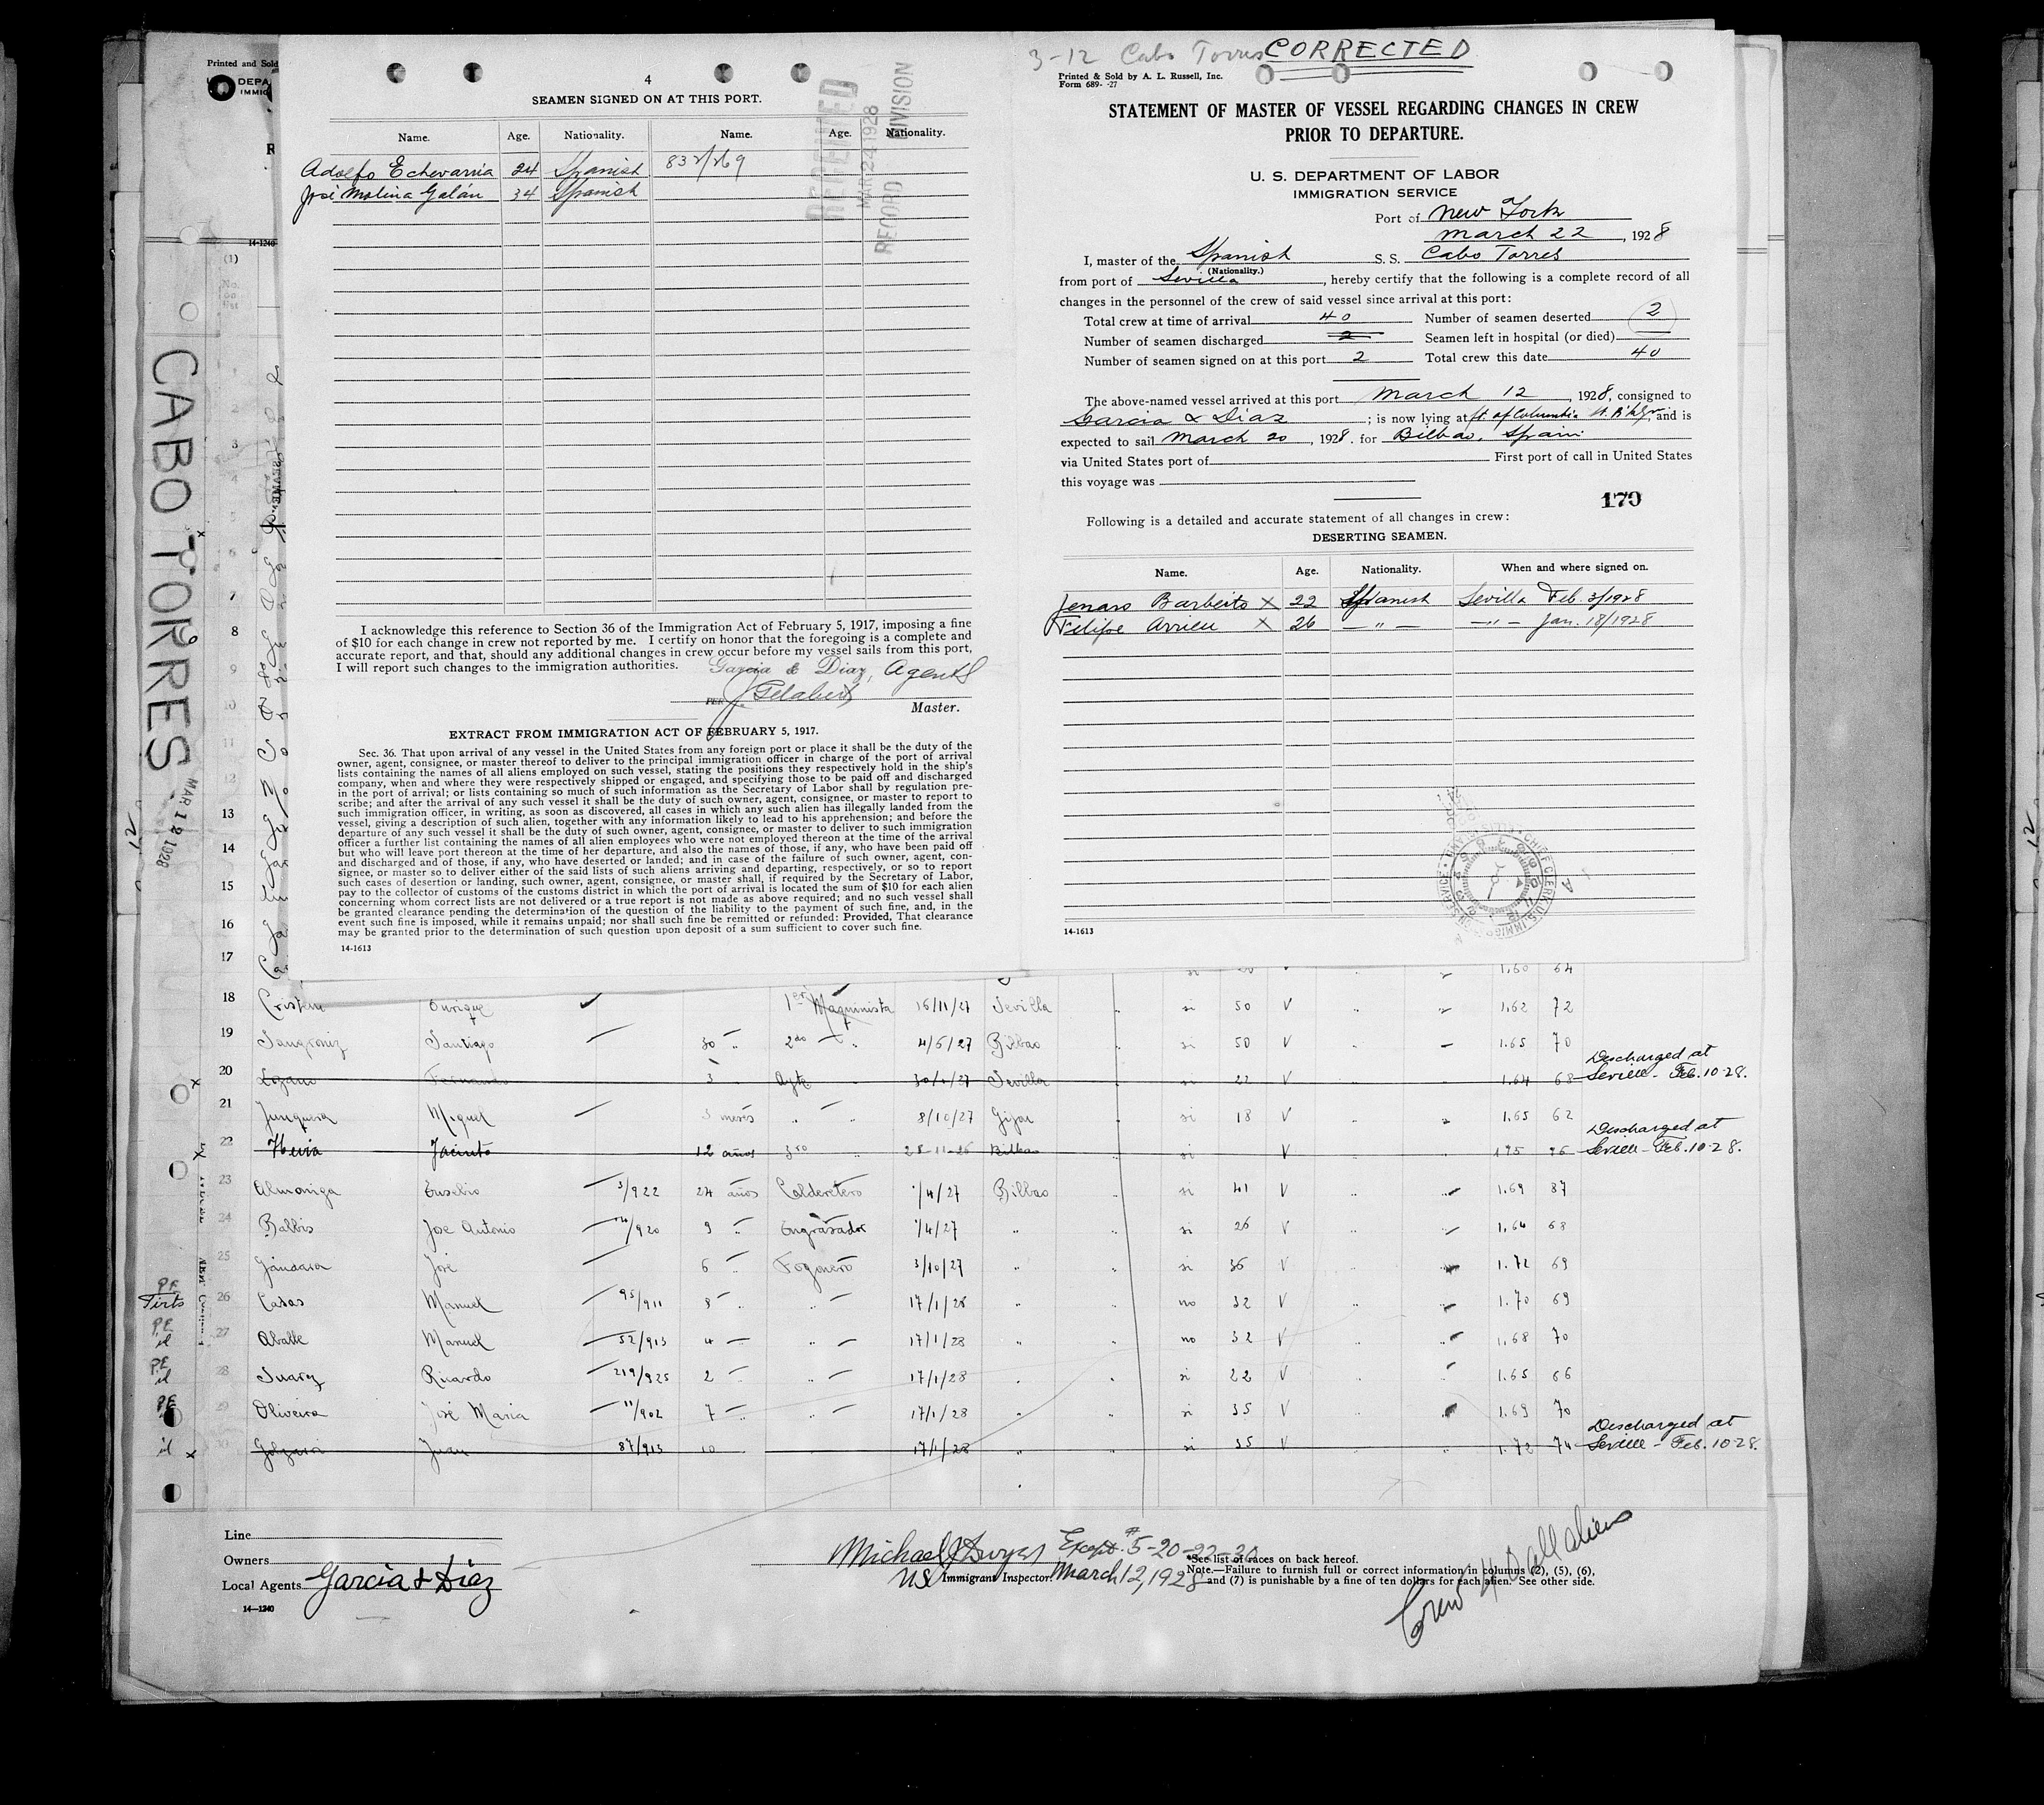 Printed and Sold
DEPA
IMMIG
4
SEAMEN SIGNED ON AT THIS PORT.
Name. Age. Nationality. Name. Age. Nationality.
Adolfo Echevarria 24 Spanish 832/269
José Molina Galán 34 Spanish
RECEIVED
MAR 24 1928
RECORD DIVISION
I acknowledge this reference to Section 36 of the Immigration Act of February 5, 1917, imposing a fine
of $10 for each change in crew not reported by me. I certify on honor that the foregoing is a complete and
accurate report, and that, should any additional changes in crew occur before my vessel sails from this port,
I will report such changes to the immigration authorities.
Garcia & Diaz, Agents
PER J. Gelabert
Master.
EXTRACT FROM IMMIGRATION ACT OF FEBRUARY 5, 1917.
Sec. 36. That upon arrival of any vessel in the United States from any foreign port or place it shall be the duty of the
owner, agent, consignee, or master thereof to deliver to the principal immigration officer in charge of the port of arrival
lists containing the names of all aliens employed on such vessel, stating the positions they respectively hold in the ship's
company, when and where they were respectively shipped or engaged, and specifying those to be paid off and discharged
in the port of arrival; or lists containing so much of such information as the Secretary of Labor shall by regulation pre-
scribe; and after the arrival of any such vessel it shall be the duty of such owner, agent, consignee, or master to report to
such immigration officer, in writing, as soon as discovered, all cases in which any such alien has illegally landed from the
vessel, giving a description of such alien, together with any information likely to lead to his apprehension; and before the
departure of any such vessel it shall be the duty of such owner, agent, consignee, or master to deliver to such immigration
officer a further list containing the names of all alien employees who were not employed thereon at the time of the arrival
but who will leave port thereon at the time of her departure, and also the names of those, if any, who have been paid off
and discharged and of those, if any, who have deserted or landed; and in case of the failure of such owner, agent, con-
signee, or master so to deliver either of the said lists of such aliens arriving and departing, respectively, or so to report
such cases of desertion or landing, such owner, agent, consignee, or master shall, if required by the Secretary of Labor,
pay to the collector of customs of the customs district in which the port of arrival is located the sum of $10 for each alien
concerning whom correct lists are not delivered or a true report is not made as above required; and no such vessel shall
be granted clearance pending the determination of the question of the liability to the payment of such fine, and, in the
event such fine is imposed, while it remains unpaid; nor shall such fine be remitted or refunded: Provided, That clearance
may be granted prior to the determination of such question upon deposit of a sum sufficient to cover such fine.
14-1613
3-12 Cabo Torres CORRECTED
Printed & Sold by A. L. Russell, Inc.
Form 689- -27
STATEMENT OF MASTER OF VESSEL REGARDING CHANGES IN CREW
PRIOR TO DEPARTURE.
U. S. DEPARTMENT OF LABOR
IMMIGRATION SERVICE
Port of New York
March 22, 1928
I, master of the Spanish S. S. Cabo Torres
(Nationality.)
from port of Sevilla, hereby certify that the following is a complete record of all
changes in the personnel of the crew of said vessel since arrival at this port:
Total crew at time of arrival 40 Number of seamen deserted 2
Number of seamen discharged 2 Seamen left in hospital (or died)
Number of seamen signed on at this port 2 Total crew this date 40
The above-named vessel arrived at this port March 12, 1928, consigned to
Garcia & Diaz; is now lying at ft. of Columbia St. B'klyn, and is
expected to sail March 20, 1928. for Bilbao, Spain
via United States port of First port of call in United States
this voyage was
170
Following is a detailed and accurate statement of all changes in crew:
DESERTING SEAMEN.
Name. Age. Nationality. When and where signed on.
Jenaro Barbeito X 22 Spanish Sevilla Feb. 3/1928
Felipe Arrieu X 26 — " — — " — Jan. 18/1928
14-1613
CABO TORRES
MAR 12 1928
14-1240
(1)
7
8
9
10
11
12
13
14
15
16
17 1.60 64
18 Cristena Enrique 1er Maquinista 16/11/27 Sevilla " si 50 V " " 1.62 72
19 Sangroniz Santiago 30 " 2do " 4/5/27 Bilbao " si 50 V " 1.65 70
20 Lozano Fernando 3 Ayte " Sevilla si 22 V 1.64 68 Discharged at
Seville - Feb. 10-28.
21 Junquera Miguel 3 meses " " 8/10/27 Gijon si 18 V " " 1.65 62
22 Hevia Jacinto 12 años 3ro " 28-11-26 Bilbao si V 195 96 Discharged at
Seville - Feb. 10-28.
23 Almoniga Eusebio 3/922 24 años Calderetero 1/4/27 Bilbao " si 41 V " " 1.69 87
24 Balbis Jose Antonio /920 9 " Engrasador 1/4/27 " " si 26 V " " 1.64 68
25 Gándara José 6 " Fogonero 3/10/27 " " si 36 V " " 1.72 69
PE
Tirts 26 Casas Manuel 95/911 8 " " 17/1/28 " " no 32 V " " 1.70 69
PE
il 27 Aballe Manuel 52/913 4 " 17/1/28 " " no 32 V " " 1.68 70
PE
il 28 Suarez Ricardo 219/925 2 " " 17/1/28 " " si 22 V " " 1.65 66
PE 29 Oliveira José Maria 11/902 7 " " 17/1/28 " " si 35 V " " 1.69 70
il 30 Juan 87/913 10 17/1/28 " " si 35 V " " 1.72 74 Discharged at
Seville - Feb. 10-28.
Line
Owners
Local Agents Garcia & Diaz
14-1240
Michael J Dwyer Except # 5-20-22-30
US Immigrant Inspector. March 12, 1928
*See list of races on back hereof.
Note.—Failure to furnish full or correct information in columns (2), (5), (6),
and (7) is punishable by a fine of ten dollars for each alien. See other side.
Crew 40 all aliens